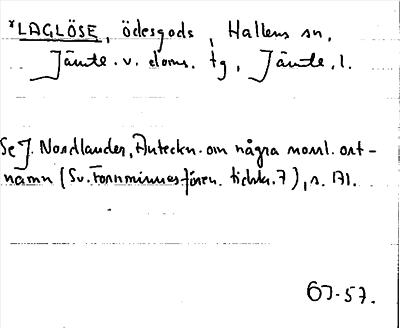 *LAGLÖSE, ödesgods, Hallens sn,
Jämte. v. doms. tg, Jämte. l.
Se J. Nordlander, Anteckn. om några norrl. ort-
namn (Sv. Fornminnesfören. tidskr. 7), s. 171.
63.57.